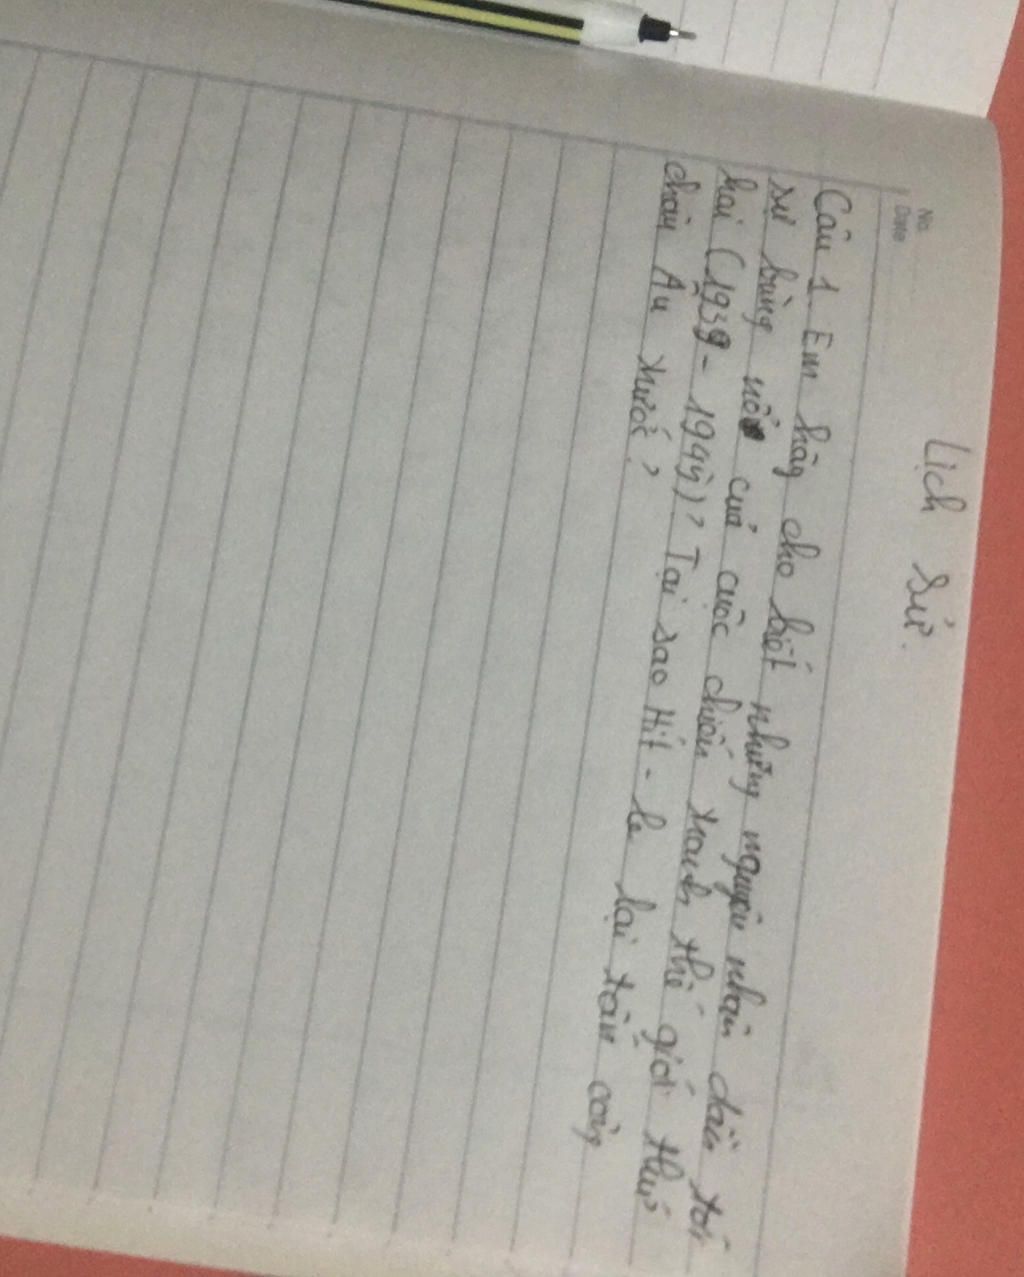 No.
Date
Lịch sử.
Câu 1. Em hãy cho biết những nguyên nhân dẫn tới
sự bùng nổ của cuộc chiến tranh thế giới thứ
hai (1939 - 1945)? Tại sao Hít - le lại tấn công
châu Âu trước?